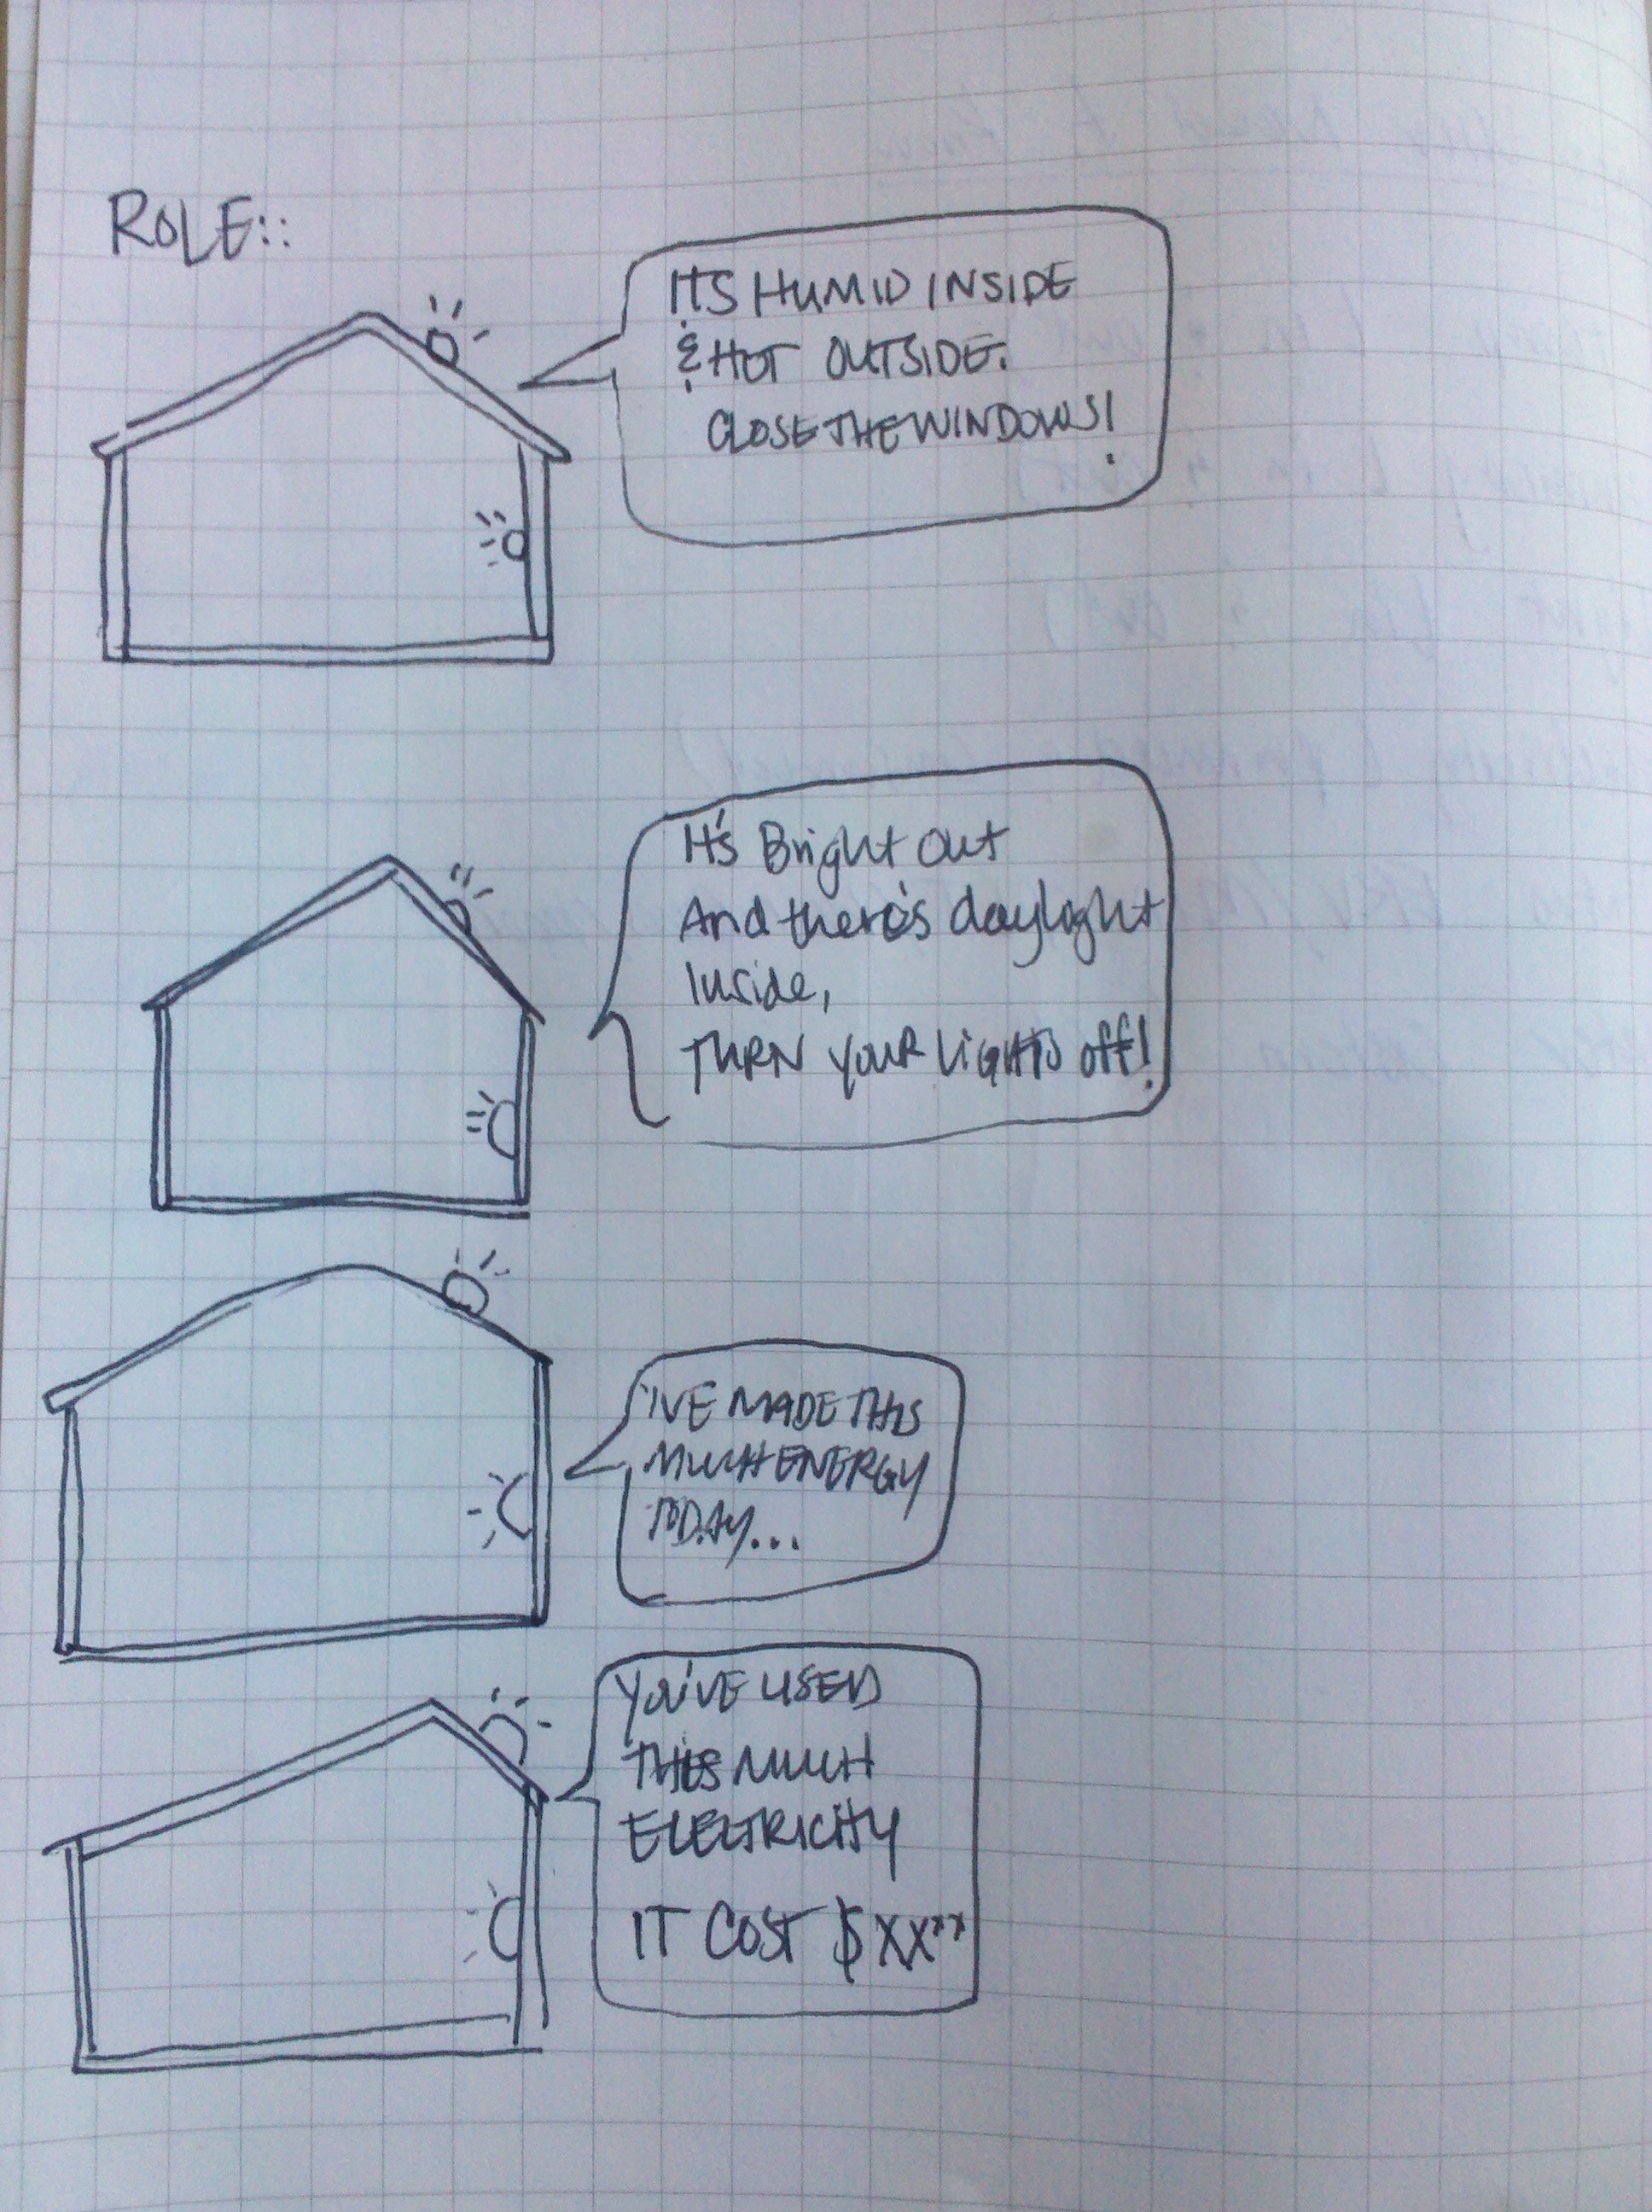 ROLE::
ITS HUMID INSIDE
& HOT OUTSIDE.
CLOSE THE WINDOWS!
It's Bright Out
And there's daylight
Inside,
TURN YOUR LIGHTS off!
I'VE MADE THIS
MUCH ENERGY
TODAY...
YOU'VE USED
THIS MUCH
ELECTRICITY
IT COST $XXˣˣ